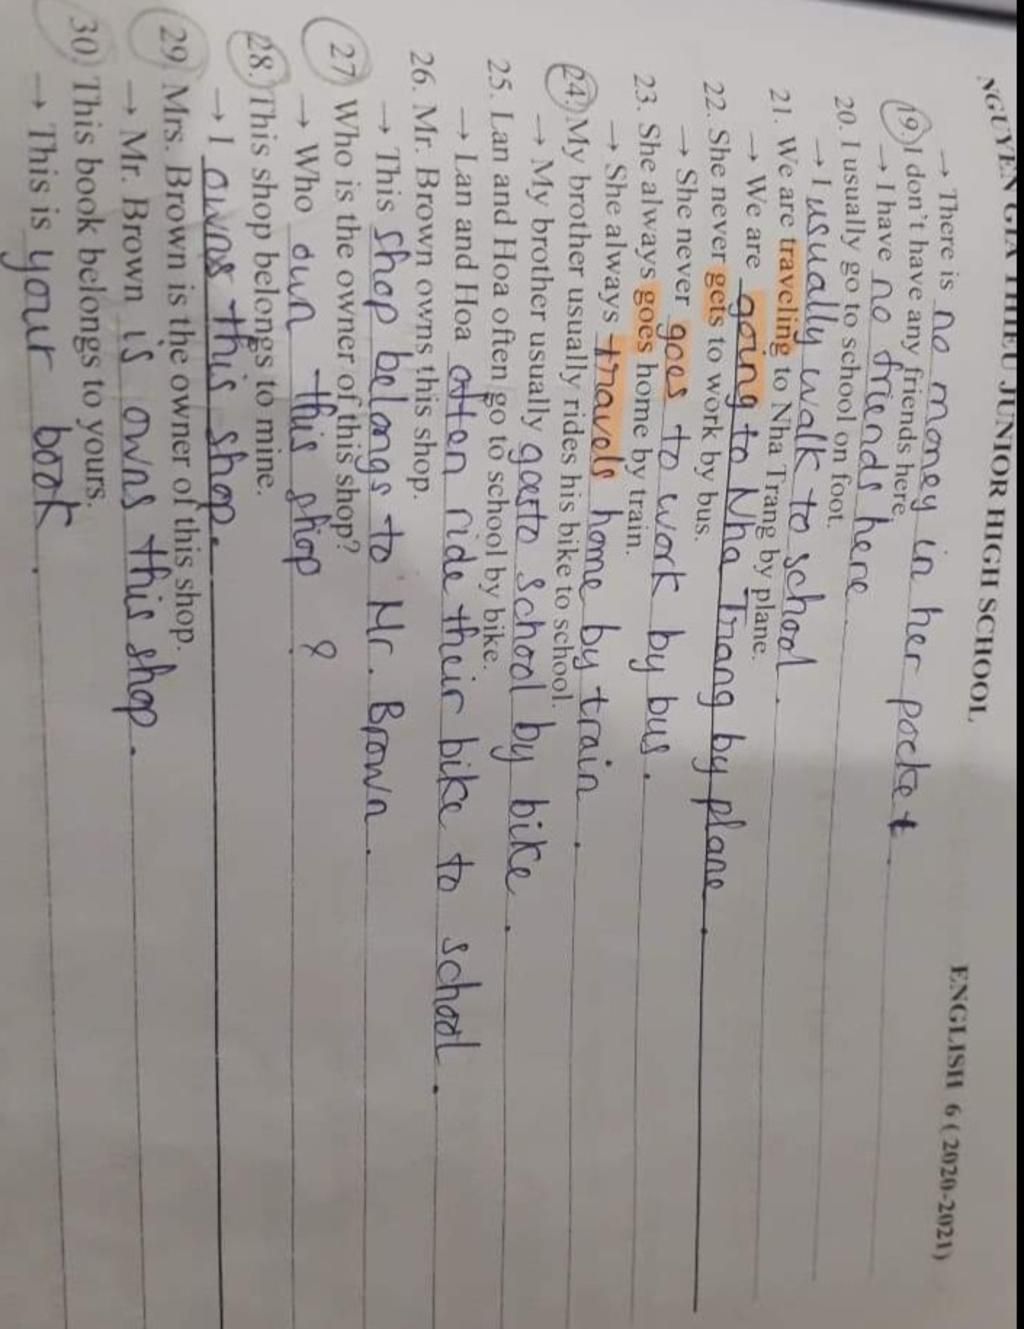 NGUYEN GIA THIEU JUNIOR HIGH SCHOOL ENGLISH 6 (2020-2021)
→ There is no money in her pocket.
19. I don't have any friends here.
→ I have no friends here
20. I usually go to school on foot.
→ I usually walk to school.
21. We are traveling to Nha Trang by plane.
→ We are going to Nha Trang by plane.
22. She never gets to work by bus.
→ She never goes to work by bus.
23. She always goes home by train.
→ She always travels home by train.
24. My brother usually rides his bike to school.
→ My brother usually goes to school by bike.
25. Lan and Hoa often go to school by bike.
→ Lan and Hoa often ride their bike to school.
26. Mr. Brown owns this shop.
→ This shop belongs to Mr. Brown.
27. Who is the owner of this shop?
→ Who own this shop ?
28. This shop belongs to mine.
→ I owns this shop.
29. Mrs. Brown is the owner of this shop.
→ Mr. Brown is owns this shop.
30. This book belongs to yours.
→ This is your book.